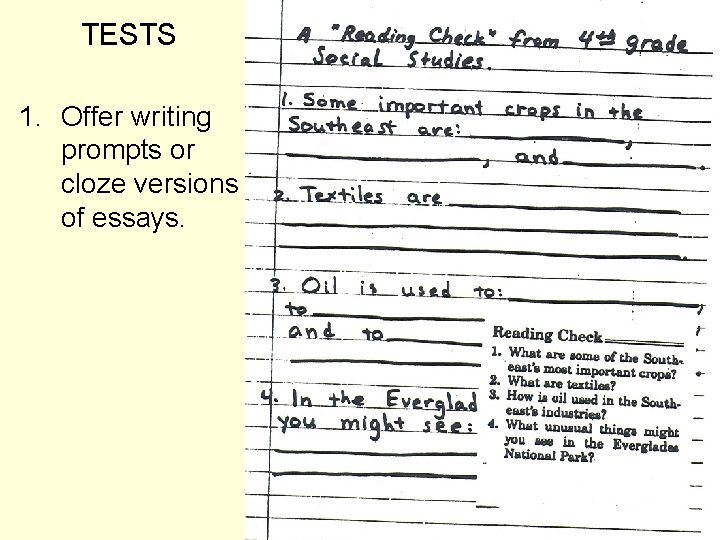 TESTS
1. Offer writing
prompts or
cloze versions
of essays.
A "Reading Check" from 4th grade
Social Studies.
1. Some important crops in the
Southeast are: ,
, and .
2. Textiles are
.
3. Oil is used to: ,
to
and to
4. In the Everglad
you might see:
Reading Check
1. What are some of the South-
east's most important crops?
2. What are textiles?
3. How is oil used in the South-
east's industries?
4. What unusual things might
you see in the Everglades
National Park?